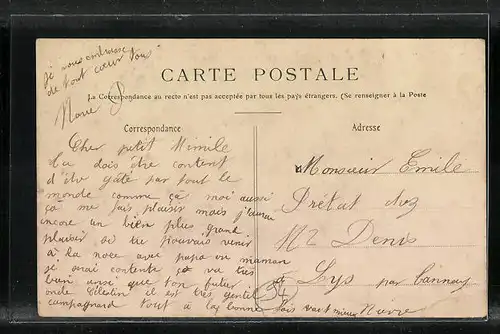 je vous embrasse
de tout cœur tous
CARTE POSTALE
La Correspondance au recto n'est pas acceptée par tous les pays étrangers. (Se renseigner à la Poste
Correspondance
Cher petit Mimile
tu dois être content
d'être gâté par tout le
monde comme ça moi aussi
ça me fais plaisir mais j'aurai
encore un bien plus grand
plaisir si tu pouvais venir
à la noce avec papa ou maman
je serai contente ça va très
bien ainsi que ton futur
oncle Célestin il est très gentil
campagnard tout à la bonne fois vaut mieux
Adresse
Monsieur Emile
Prétat chez
Mr Denis
à Lys par Tannay
Nièvre